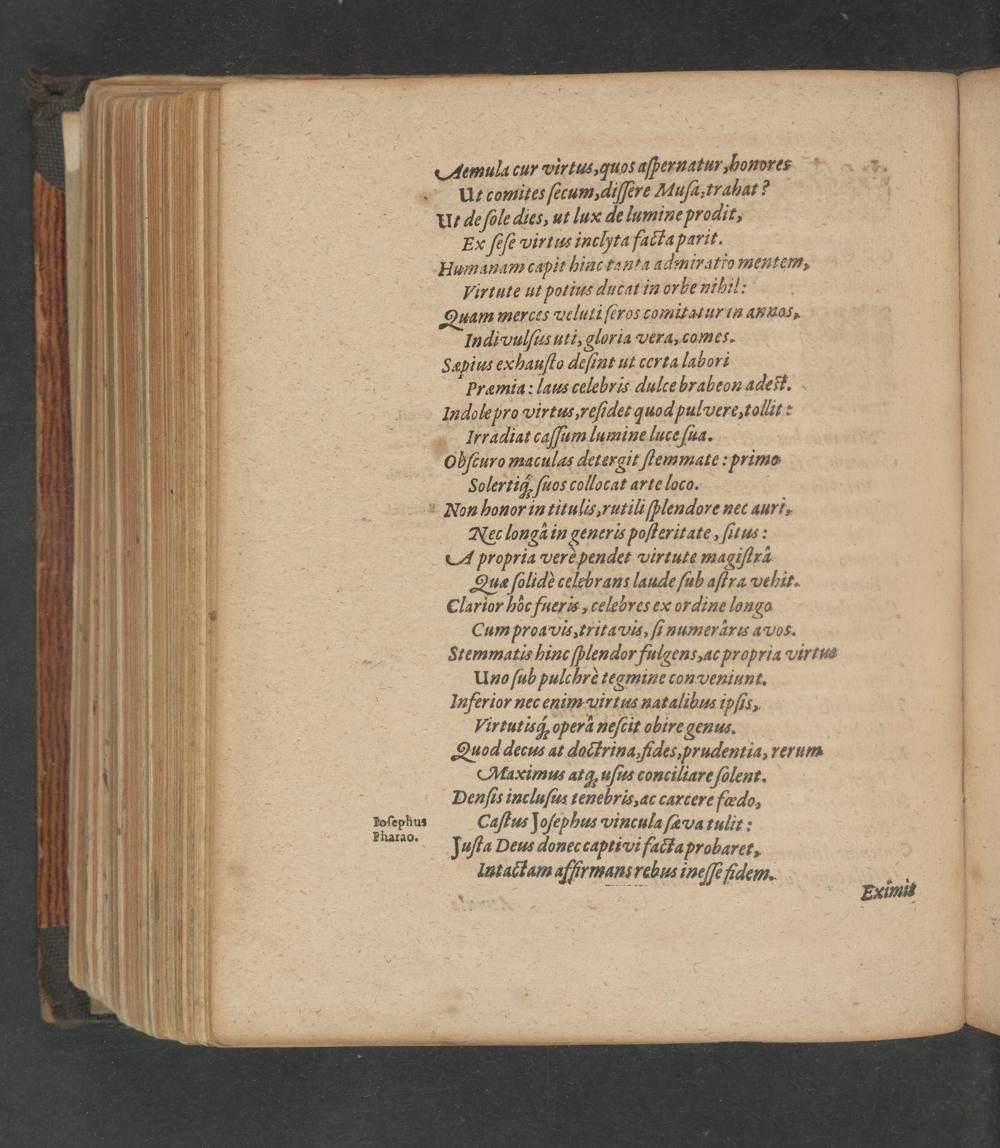 Aemula cur virtus, quos aſpernatur, honores
Ut comites ſecum, diſſere Muſa, trahat?
Ut de ſole dies, ut lux de lumine prodit,
Ex ſeſe virtus inclyta facta parit.
Humanam capit hinc tanta admiratio mentem,
Virtute ut potius ducat in orbe nihil:
Quam merces veluti ſeros comitatur in annos,
Indivulſus uti, gloria vera, comes.
Sæpius exhauſto deſint ut certa labori
Præmia: laus celebris dulce brabeon adeſt.
Indole pro virtus, reſidet quod pulvere, tollit:
Irradiat caſſum lumine luce ſua.
Obſcuro maculas detergit ſtemmate: primo
Solertiq́; ſuos collocat arte loco.
Non honor in titulis, rutili ſplendore nec auri,
Nec longâ in generis poſteritate, ſitus:
A propria verè pendet virtute magiſtrâ
Quæ ſolidè celebrans laude ſub aſtra vehit.
Clarior hôc fueris, celebres ex ordine longo
Cum proavis, tritavis, ſi numerâris avos.
Stemmatis hinc ſplendor fulgens, ac propria virtus
Uno ſub pulchrè tegmine conveniunt.
Inferior nec enim virtus natalibus ipſis,
Virtutisq́; operâ neſcit obire genus.
Quod decus at doctrina, fides, prudentia, rerum
Maximus atq; uſus conciliare ſolent.
Denſis incluſus tenebris, ac carcere fœdo,
Caſtus Joſephus vincula ſæva tulit:
Joſephus
Pharao.
Juſta Deus donec captivi facta probaret,
Intactam affirmans rebus ineſſe fidem.
Eximit